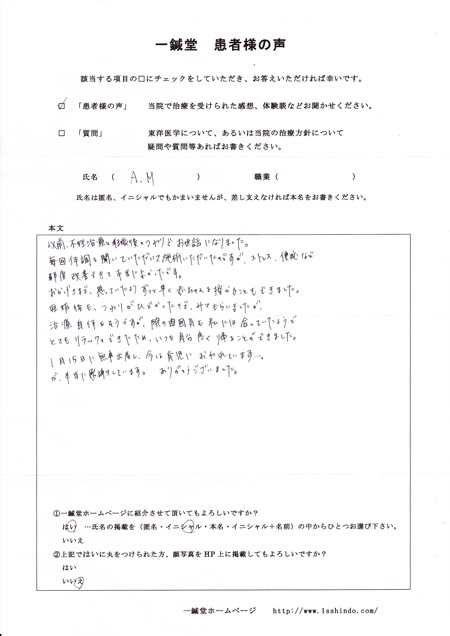 一鍼堂 患者様の声
該当する項目の□にチェックをしていただき、お答えいただければ幸いです。
☑ 「患者様の声」 当院で治療を受けられた感想、体験談などお聞かせください。
□ 「質問」 東洋医学について、あるいは当院の治療方針について
疑問や質問等あればお書きください。
氏名 ( A.M ) 職業 ( )
氏名は匿名、イニシャルでもかまいませんが、差し支えなければ本名をお書きください。
本文
以前、不妊治療と妊娠後のつわりでお世話になりました。
毎回体調を聞いていただいて施術いただいたのですが、ストレス、便秘など
改善できて本当によかったです。
おかげさまで、思っていたよりずっと早く赤ちゃんを授かることもできました。
妊娠後も、つわりがひどかったので、みてもらいましたが、
治療自体もそうですが、院の雰囲気も私には合っていたようで
とてもリラックスできたため、いつも気分良く帰ることができました。
1月15日に無事出産し、今は育児におわれています…。
が、本当に感謝しています。 ありがとうございました。
①一鍼堂ホームページに紹介させて頂いてもよろしいですか？
はい …氏名の掲載を（匿名・イニシャル・本名・イニシャル＋名前）の中からひとつお選び下さい。
いいえ
②上記ではいに丸をつけられた方、顔写真をHP上に掲載してもよろしいですか？
はい
いいえ
一鍼堂ホームページ http://www.1sshindo.com/